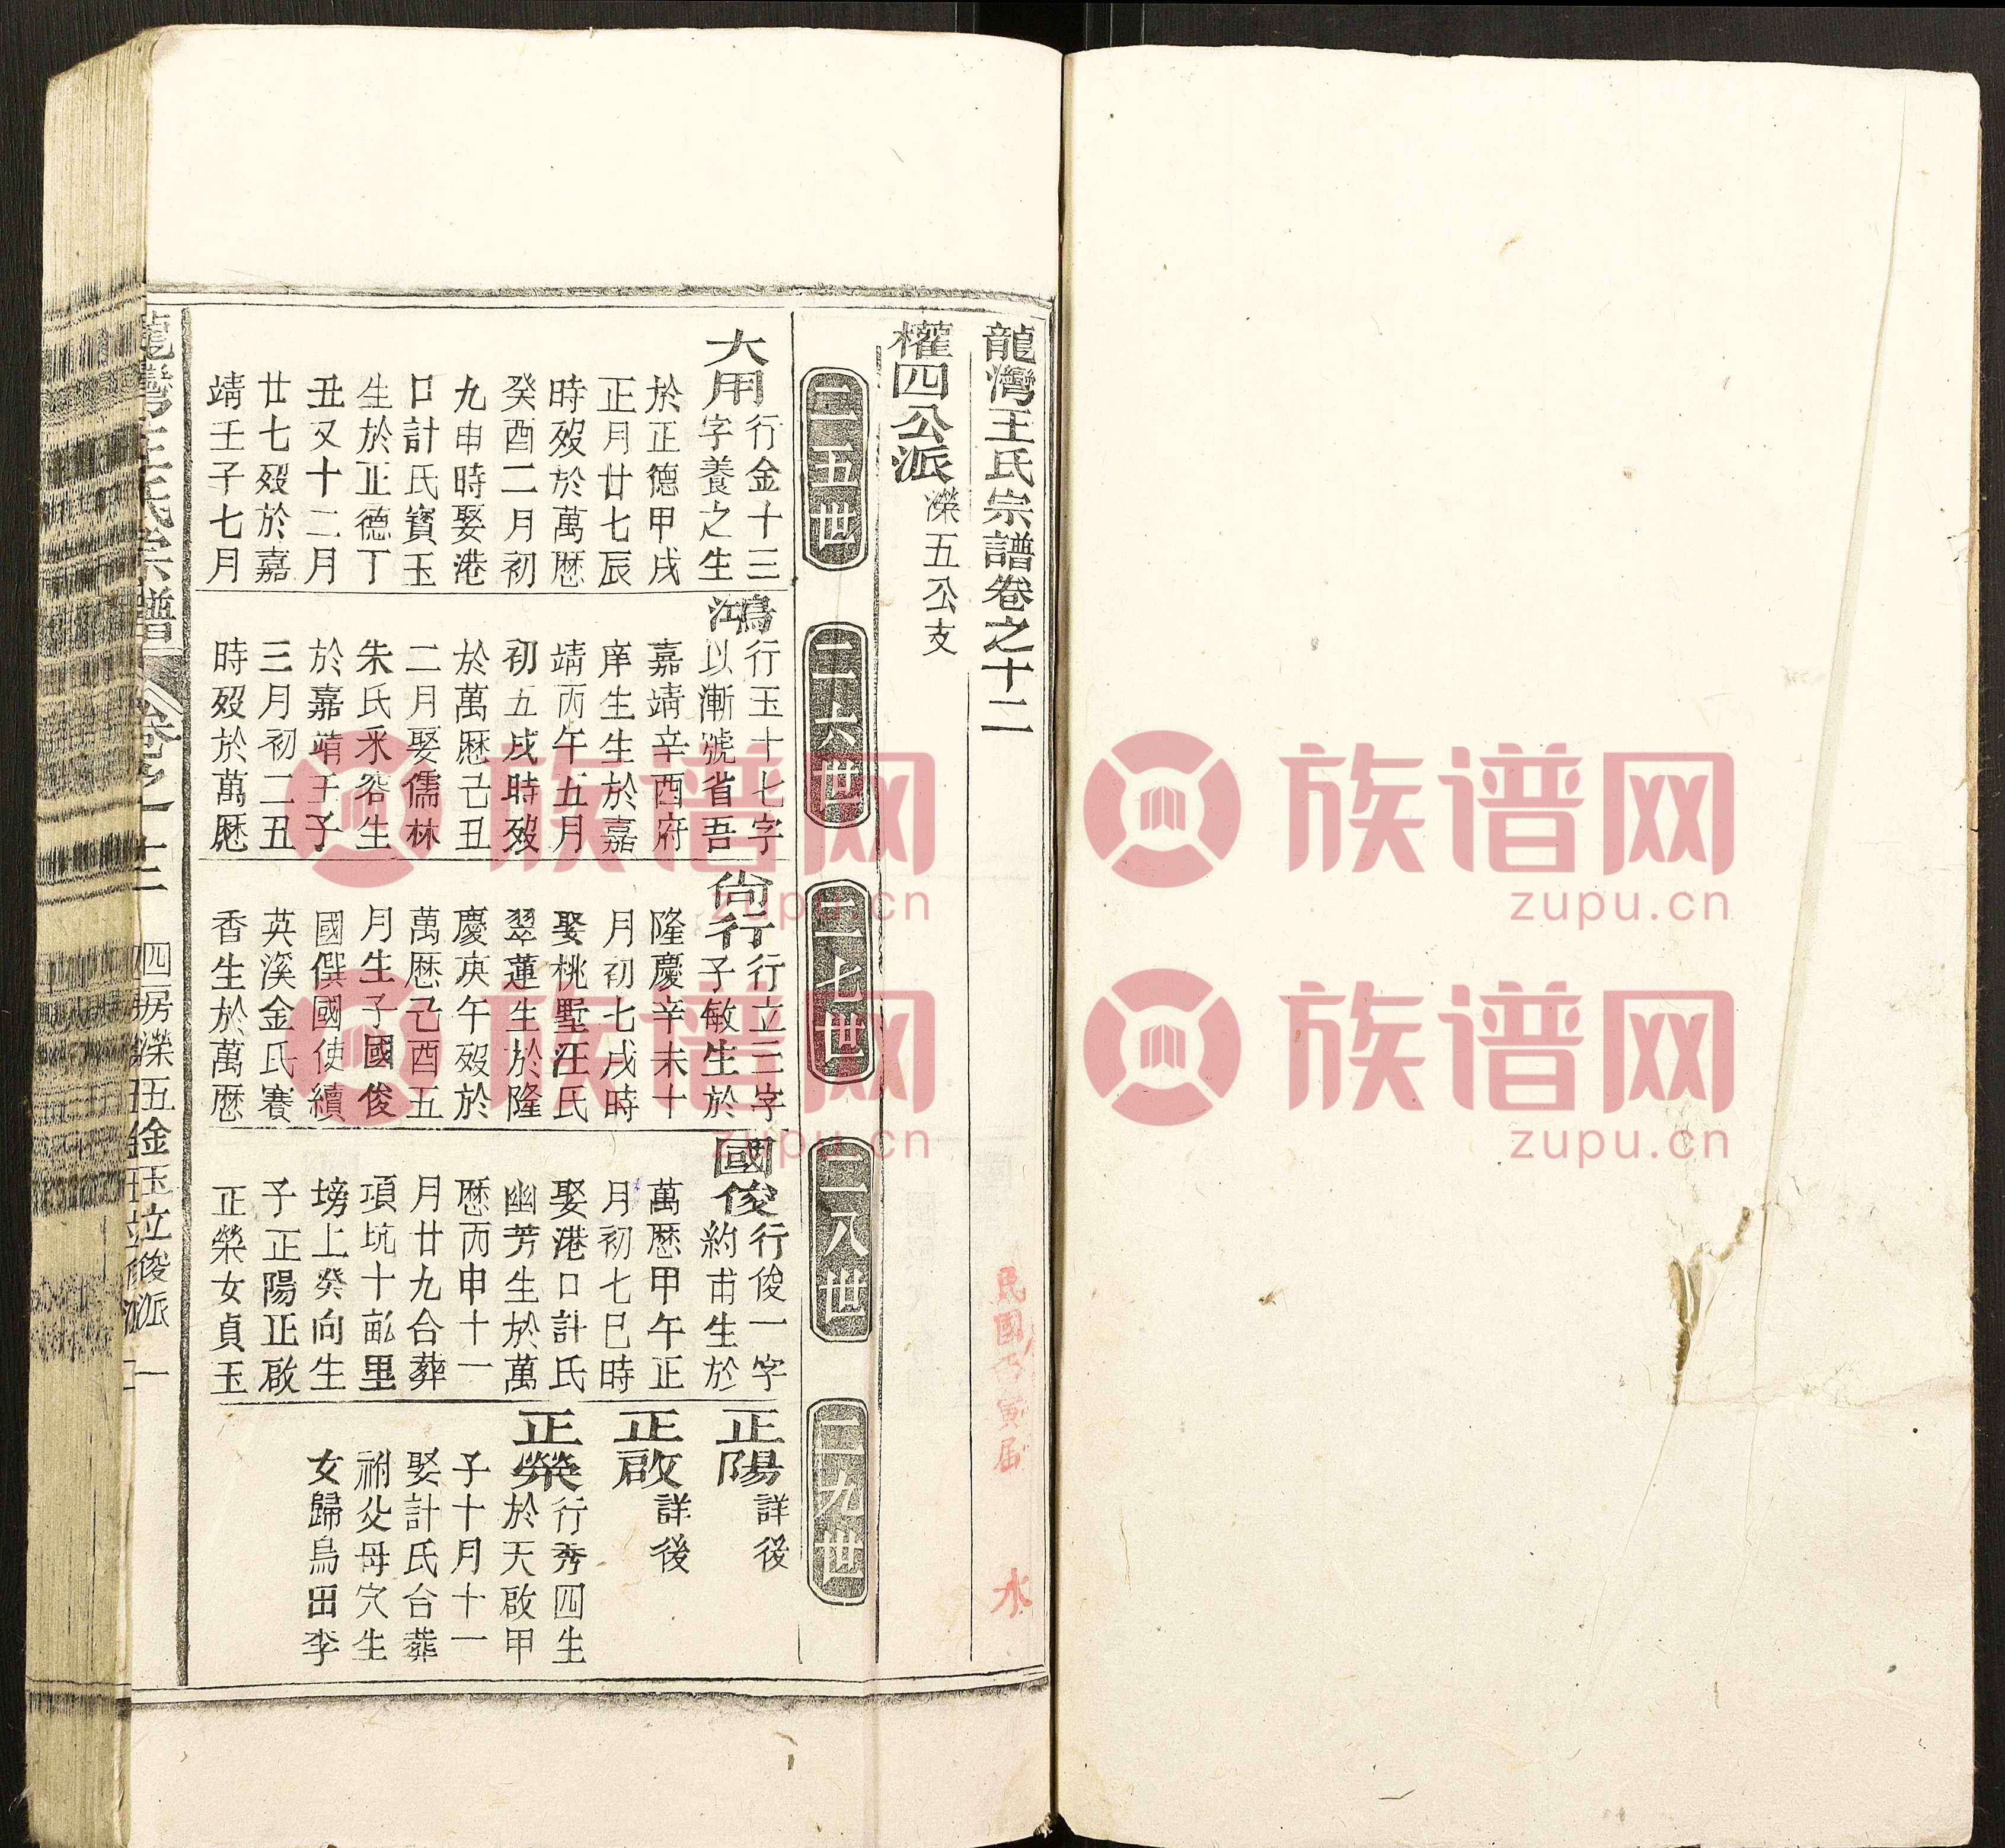 龍灣王氏宗譜卷之十二
權四公派 濼五公支
民國丙寅屆 水
二五世
二六世
二七世
二八世
二九世
大用 行金十三
字養之生
於正德甲戌
正月廿七辰
時歿於萬曆
癸酉二月初
九申時娶港
口計氏寶玉
生於正德丁
丑又十二月
廿七歿於嘉
靖壬子七月
鴻 行玉十七字
以漸號省吾
嘉靖辛酉府
庠生生於嘉
靖丙午五月
初五戌時歿
於萬曆己丑
二月娶儒林
朱氏釆 生
於嘉靖壬子
三月初二丑
時歿於萬曆
尙行 行立三字
子敏生於
隆慶辛未十
月初七戌時
娶桃墅汪氏
翠蓮生於隆
慶庚午歿於
萬曆己酉五
月生子國俊
國僎國使續
英溪金氏賽
香生於萬曆
國俊 行俊一字
約甫生於
萬曆甲午正
月初七巳時
娶港口計氏
幽芳生於萬
曆丙申十一
月廿九合葬
項坑十畝里
塝上癸向生
子正陽正啟
正榮女貞玉
正陽 詳後
正啟 詳後
正榮 行秀四生
於天啟甲
子十月十一
娶計氏合葬
祔父母穴生
女歸鳥田李
龍灣王氏宗譜 卷之十二 四房濼五金玉立俊派 一
族谱网
zupu.cn
族谱网
zupu.cn
族谱网
zupu.cn
族谱网
zupu.cn